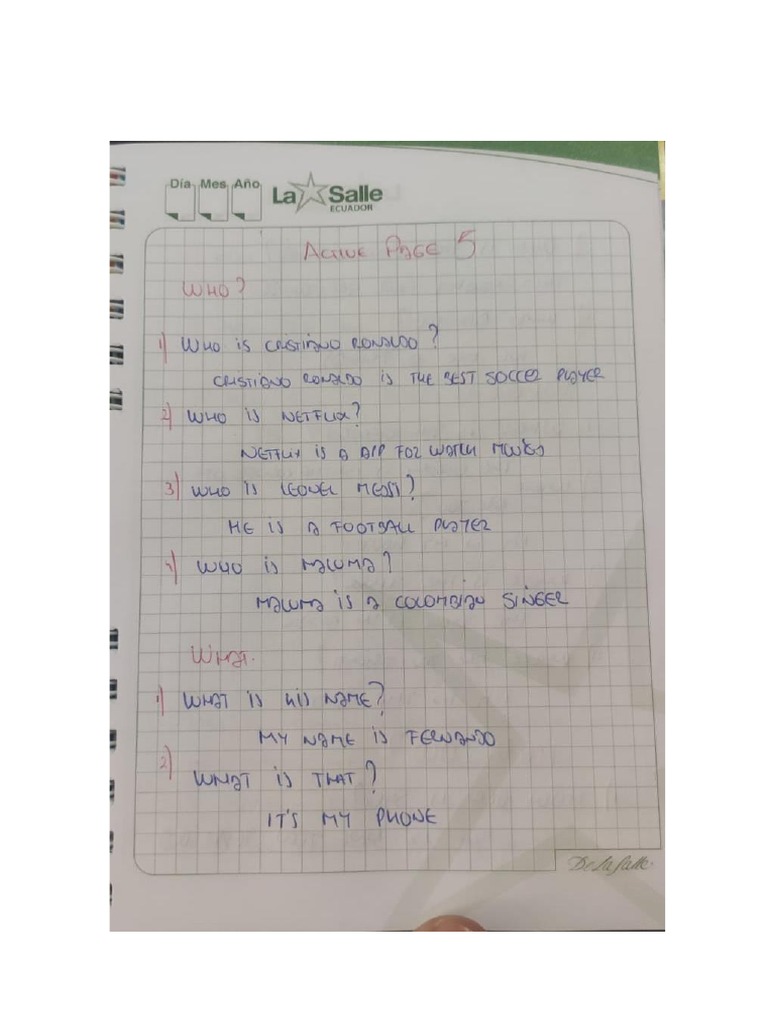 Día Mes Año
La Salle
ECUADOR
ACTIVE PAGE 5
WHO?
1) WHO IS CRISTIANO RONALDO?
CRISTIANO RONALDO IS THE BEST SOCCER PLAYER
2) WHO IS NETFLIX?
NETFLIX IS A APP FOR WATCH
3) WHO IS LEONEL MESSI?
HE IS A FOOTBALL PLAYER
4) WHO IS MALUMA?
MALUMA IS A COLOMBIAN SINGER
WHAT.
1) WHAT IS HIS NAME?
MY NAME IS FERNANDO
2) WHAT IS THAT?
IT'S MY PHONE
De La Salle